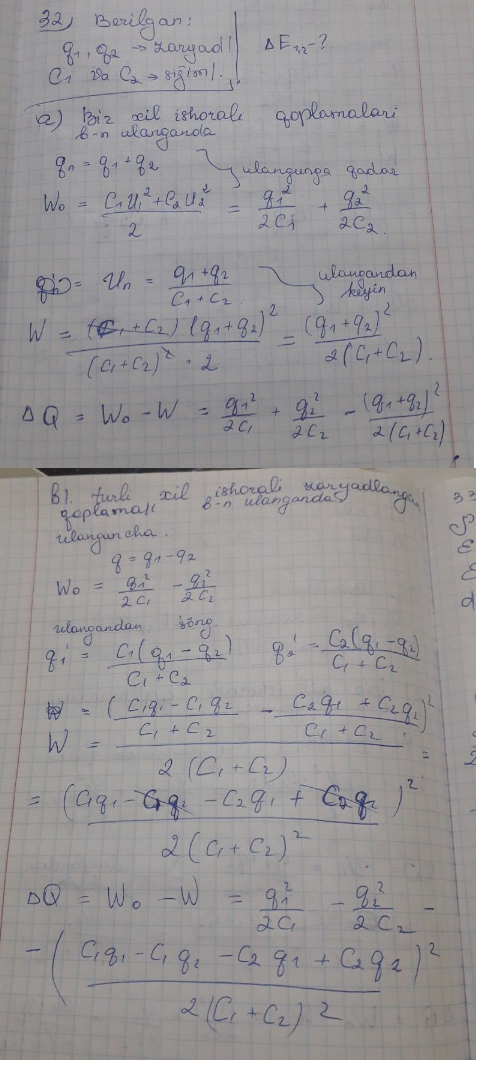 32, Berilgan:
q₁, q₂ → zaryad
C₁ va C₂ → sig'im
ΔE₁,₂ - ?
a) Bir xil ishorali qoplamalari
b-n ulanganda
qₙ = q₁ + q₂
ulangunga qadar
W₀ = (C₁U₁² + C₂U₂²)/2 = q₁²/2C₁ + q₂²/2C₂
Uₙ = (q₁+q₂)/(C₁+C₂)
ulangandan
keyin
W = (C₁+C₂)(q₁+q₂)²/((C₁+C₂)²·2) = (q₁+q₂)²/2(C₁+C₂).
ΔQ = W₀ - W = q₁²/2C₁ + q₂²/2C₂ - (q₁+q₂)²/2(C₁+C₂)
B). turli xil ishorali zaryadlangan
qoplamalı b-n ulanganda
ulanguncha.
q = q₁ - q₂
W₀ = q₁²/2C₁ - q₂²/2C₂
ulangandan song.
q₁' = C₁(q₁ - q₂)/(C₁ + C₂) q₂' = C₂(q₁ - q₂)/(C₁ + C₂)
W = ((C₁q₁ - C₁q₂)/(C₁ + C₂) - (C₂q₁ + C₂q₂)/(C₁ + C₂))²/2(C₁ + C₂) =
= (C₁q₁ - C₁q₂ - C₂q₁ + C₂q₂)²/2(C₁ + C₂)²
ΔQ = W₀ - W = q₁²/2C₁ - q₂²/2C₂ -
- (C₁q₁ - C₁q₂ - C₂q₁ + C₂q₂)²/2(C₁ + C₂)2